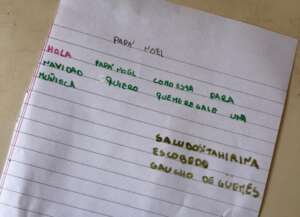 PAPA' NOEL
HOLA PAPA' NOEL COMO ESTA PARA
NAVIDAD QUIERO QUE ME REGALE UNA
MUÑECA
SALUDOS TAHIRINA
ESCOBEDO
GAUCHO DE GUEMES